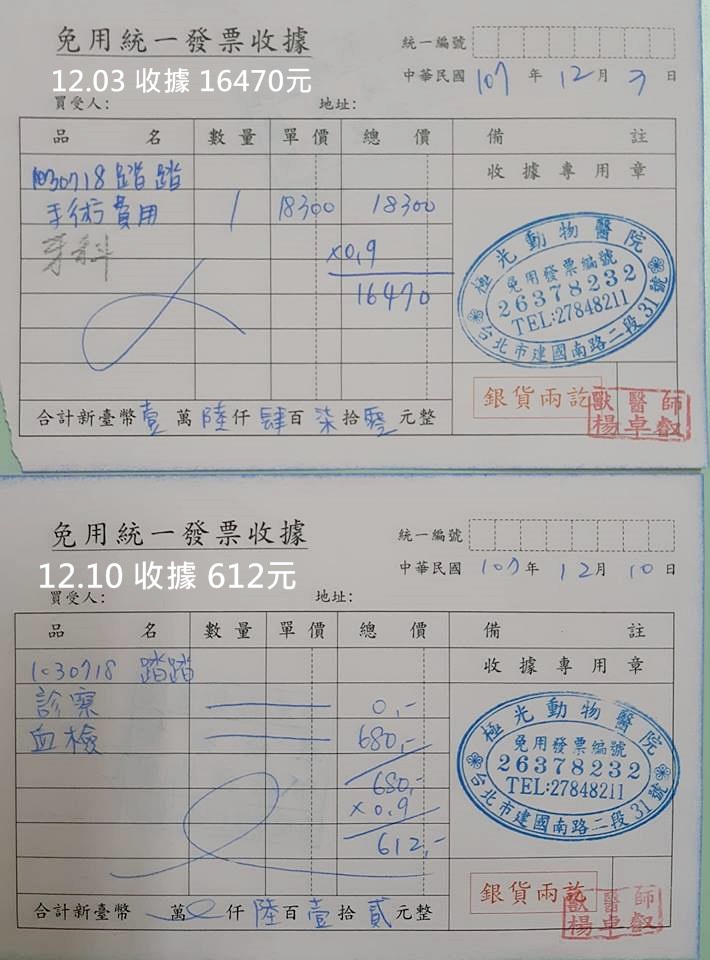 免用統一發票收據
統一編號
12.03 收據 16470元
中華民國 107 年 12 月 3 日
買受人: 地址:
品名 數量 單價 總價 備註
1030718 踏踏 收據專用章
手術費用 1 18300 18300
牙科 x0.9
16470
極光動物醫院
免用發票編號
26378232
TEL:27848211
台北市建國南路二段31號
銀貨兩訖
獸醫師
楊卓叡
合計新臺幣壹萬陸仟肆百柒拾零元整
免用統一發票收據
統一編號
12.10 收據 612元
中華民國 107 年 12 月 10 日
買受人: 地址:
品名 數量 單價 總價 備註
1030718 踏踏 收據專用章
診察 0,-
血檢 680,-
680,-
x0.9
612,-
極光動物醫院
免用發票編號
26378232
TEL:27848211
台北市建國南路二段31號
銀貨兩訖
獸醫師
楊卓叡
合計新臺幣 萬 仟陸百壹拾貳元整